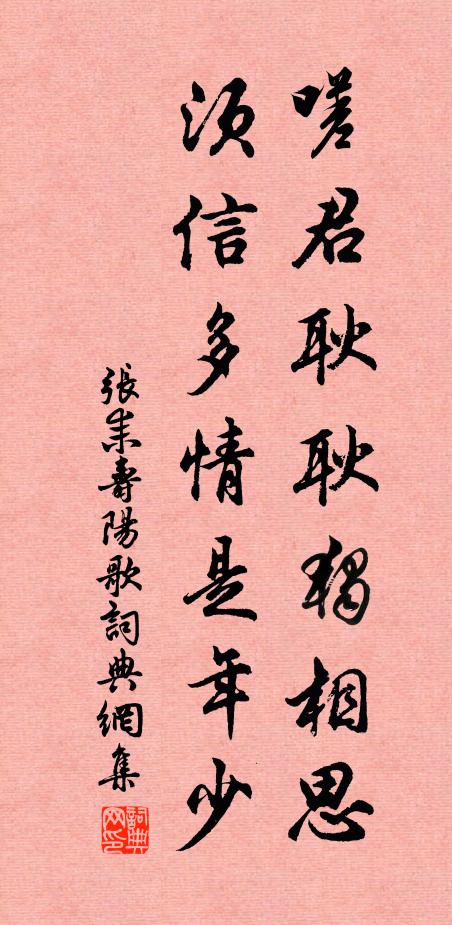 嗟君耿耿獨相思
須信多情是年少
張耒壽陽歌詞典網集
詞典网印